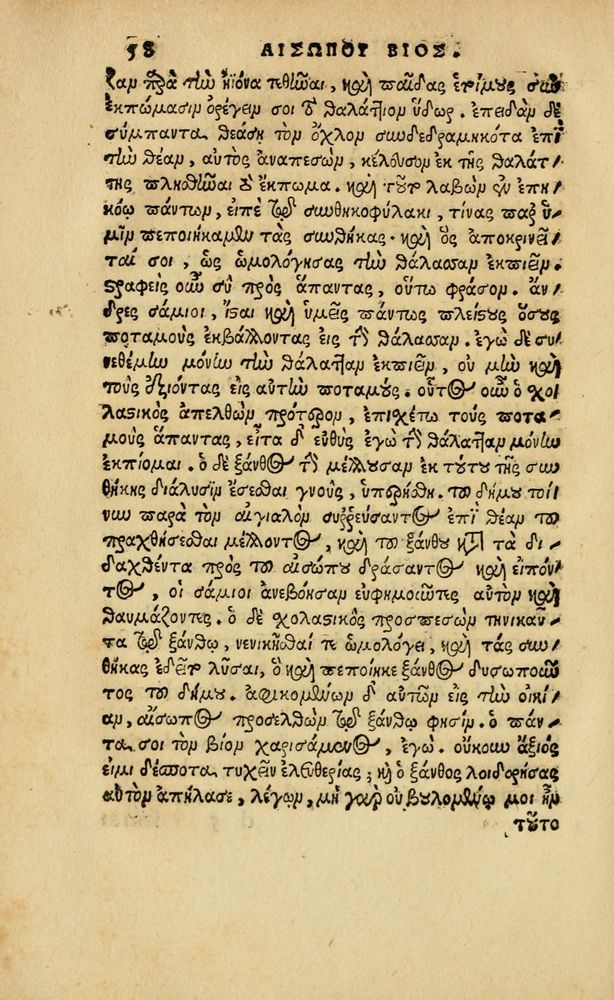 58 ΑΙΣΩΠΟΥ ΒΙΟΣ.
ζαν παρὰ τὴν ἠϊόνα τεθῆναι, καὶ παῖδας ἑτοίμους σὺν
ἐκπώμασιν ὀρέγειν σοι τὸ θαλάττιον ὕδωρ. ἐπειδὰν δὲ
σύμπαντα θεάσῃ τὸν ὄχλον συνδεδραμηκότα ἐπὶ
τὴν θέαν, αὐτὸς ἀναπεσὼν, κέλευσον ἐκ τῆς θαλάτ-
της πλησθῆναι τὸ ἔκπωμα. καὶ τοῦτο λαβὼν ἐν ἐπη-
κόῳ πάντων, εἰπὲ τῷ συνθηκοφύλακι, τίνας παρ' ὑ-
μῖν πεποίηκαμεν τὰς συνθήκας. καὶ ὃς ἀποκρινεῖ-
ταί σοι, ὡς ὡμολόγησας τὴν θάλασσαν ἐκπιεῖν.
στραφεὶς οὖν σὺ πρὸς ἅπαντας, οὕτω φράσον. ἄν-
δρες σάμιοι, ἴσαι καὶ ὑμεῖς πάντως πλείστους ὅσους
ποταμοὺς ἐκβάλλοντας εἰς τὴν θάλασσαν. ἐγὼ δὲ συ-
νεθέμην μόνην τὴν θάλατταν ἐκπιεῖν, οὐ μὴν καὶ
τοὺς ἐξιόντας εἰς αὐτὴν ποταμούς. οὗτος οὖν ὁ σχο-
λαστικὸς ἀπελθὼν πρότερον, ἐπισχέτω τοὺς ποτα-
μοὺς ἅπαντας, εἶτα δ' εὐθὺς ἐγὼ τὴν θάλατταν μόνην
ἐκπίομαι. ὁ δὲ ξάνθος τὴν μέλλουσαν ἐκ τούτου τῆς συν
θήκης διάλυσιν ἔσεσθαι γνοὺς, ὑπερήσθη. τοῦ δήμου τοί-
νυν παρὰ τὸν αἰγιαλὸν συρρεύσαντος ἐπὶ θέαν τοῦ
πραχθήσεσθαι μέλλοντος, καὶ τοῦ ξάνθου κατὰ τὰ δι-
δαχθέντα πρὸς τοῦ αἰσώπου δράσαντος καὶ εἰπόν-
τος, οἱ σάμιοι ἀνεβόησαν εὐφημοῦντες αὐτὸν καὶ
θαυμάζοντες. ὁ δὲ σχολαστικὸς προσπεσὼν τηνικαῦ-
τα τῷ ξάνθῳ, νενικῆσθαί τε ὡμολόγει, καὶ τὰς συν-
θήκας ἐδεῖτο λῦσαι, ὃ καὶ πεποίηκε ξάνθος δυσωποῦν
τος τοῦ δήμου. ἀφικομένων δ' αὐτῶν εἰς τὴν οἰκί-
αν, αἴσωπος προσελθὼν τῷ ξάνθῳ φησίν. ὁ πάν-
τα σοι τὸν βίον χαρισάμενος, ἐγώ. οὔκουν ἄξιός
εἰμι δέσποτα τυχεῖν ἐλευθερίας; καὶ ὁ ξάνθος λοιδορήσας
αὐτὸν ἀπήλασε, λέγων, μὴ γὰρ οὐ βουλομένῳ μοι ἦν
τοῦτο